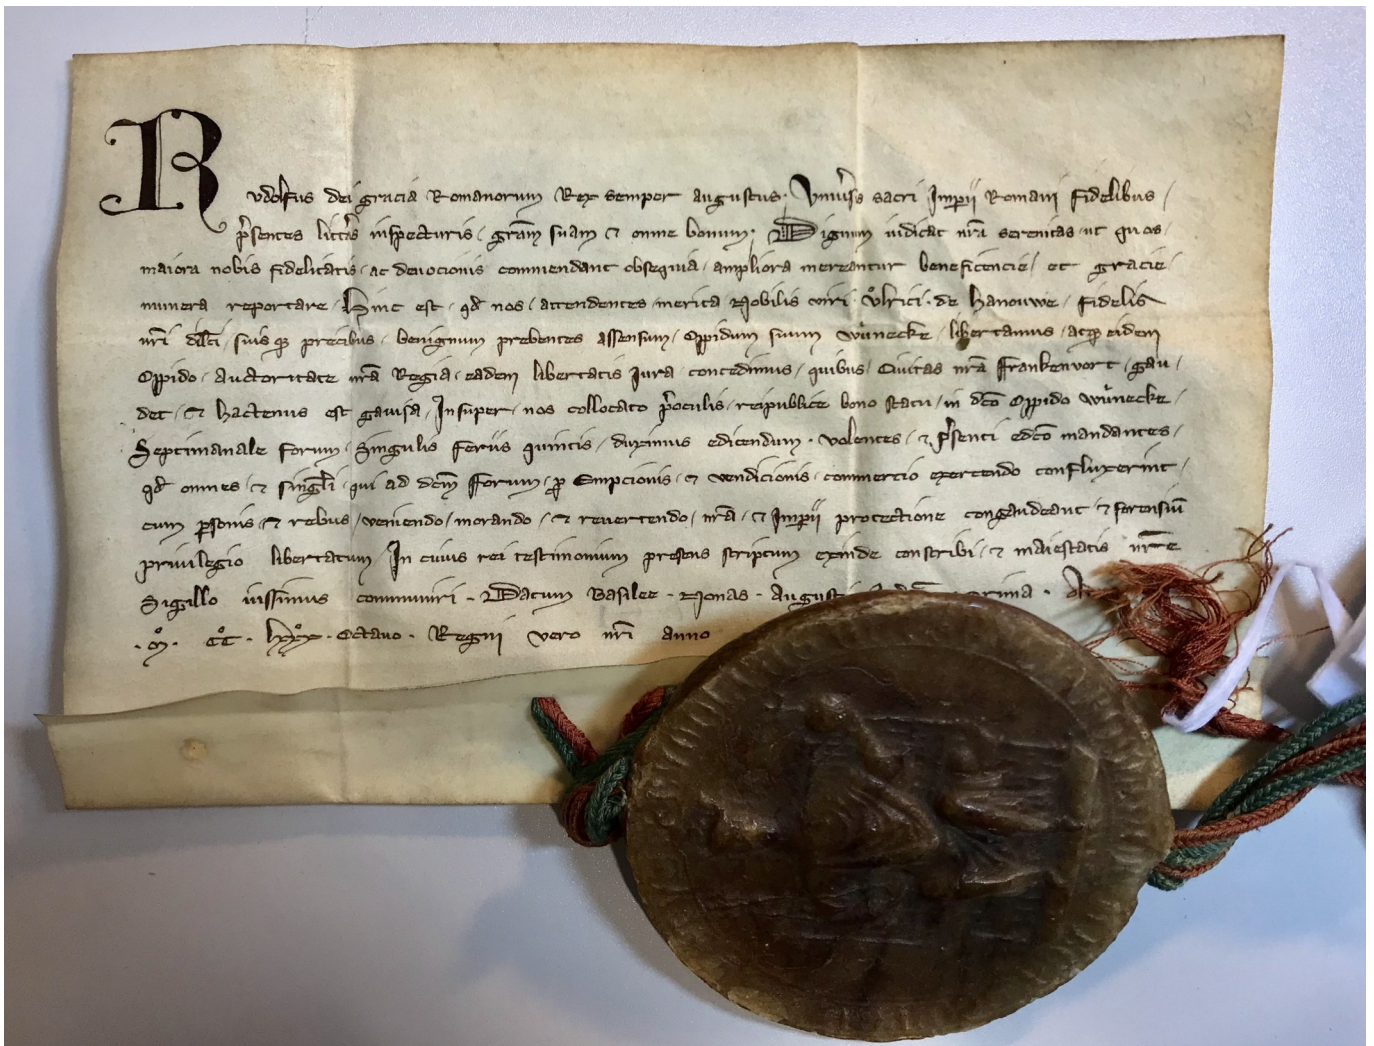 Rudolfus dei gracia Romanorum Rex semper augustus. Vniu̓sis sacri Imp̲ii Romani fidelibus /
p̓sentes litt̓as inspecturis / gr̄am suam ⁊ omne bonum. Dignum iudicat nr̄a serenitas ut quos /
maiora nobis fidelitatis / ac deuocionis commendant obsequia / ampliora mereantur beneficencie / et gracie /
munera reportare / Hinc est / qd̓ nos / attendentes merita Nobilis viri vͦlrici de Hanouwe / fidelis
nr̄i dil̄ci / suisq̲ precibus / benignum prebentes assensum / Oppidum suum wͦnecke / libertamus / atq̲ eidem
Oppido / Auctoritate nr̄a Regia / eadem libertatis Iura concedimus / quibus Ciuitas nr̄a ffrankenvort / gau /
det / ⁊ hactenus est gauisa / Insuper / nos collocato p̓ oculis / reipublice bono statu / in dc̄o Oppido wͦnecke /
Septimanale forum / Singulis feriis quintis / duximus edicendum / volentes / ⁊ p̓senti edc̄o mandantes /
qd̓ omnes / ⁊ singl̄i / qui ad dc̄m fforum / p̲ Empcionis / ⁊ vendicionis / commercio exercendo confluxerint /
cum p̲sonis / ⁊ rebus / veniendo / morando / ⁊ reuertendo / nr̄a / ⁊ Imp̲ii protectione congaudeant ⁊ forensiū
priuilegio libertatum In cuius rei testimonium presens scriptum exinde conscribi / ⁊ maiestatis nr̄e
Sigillo iussimus communiri . Datum Basilee . Nonas . August
. Mͦ . CͦC . lxxxͦ . Octauo . Regni vero nr̄i anno